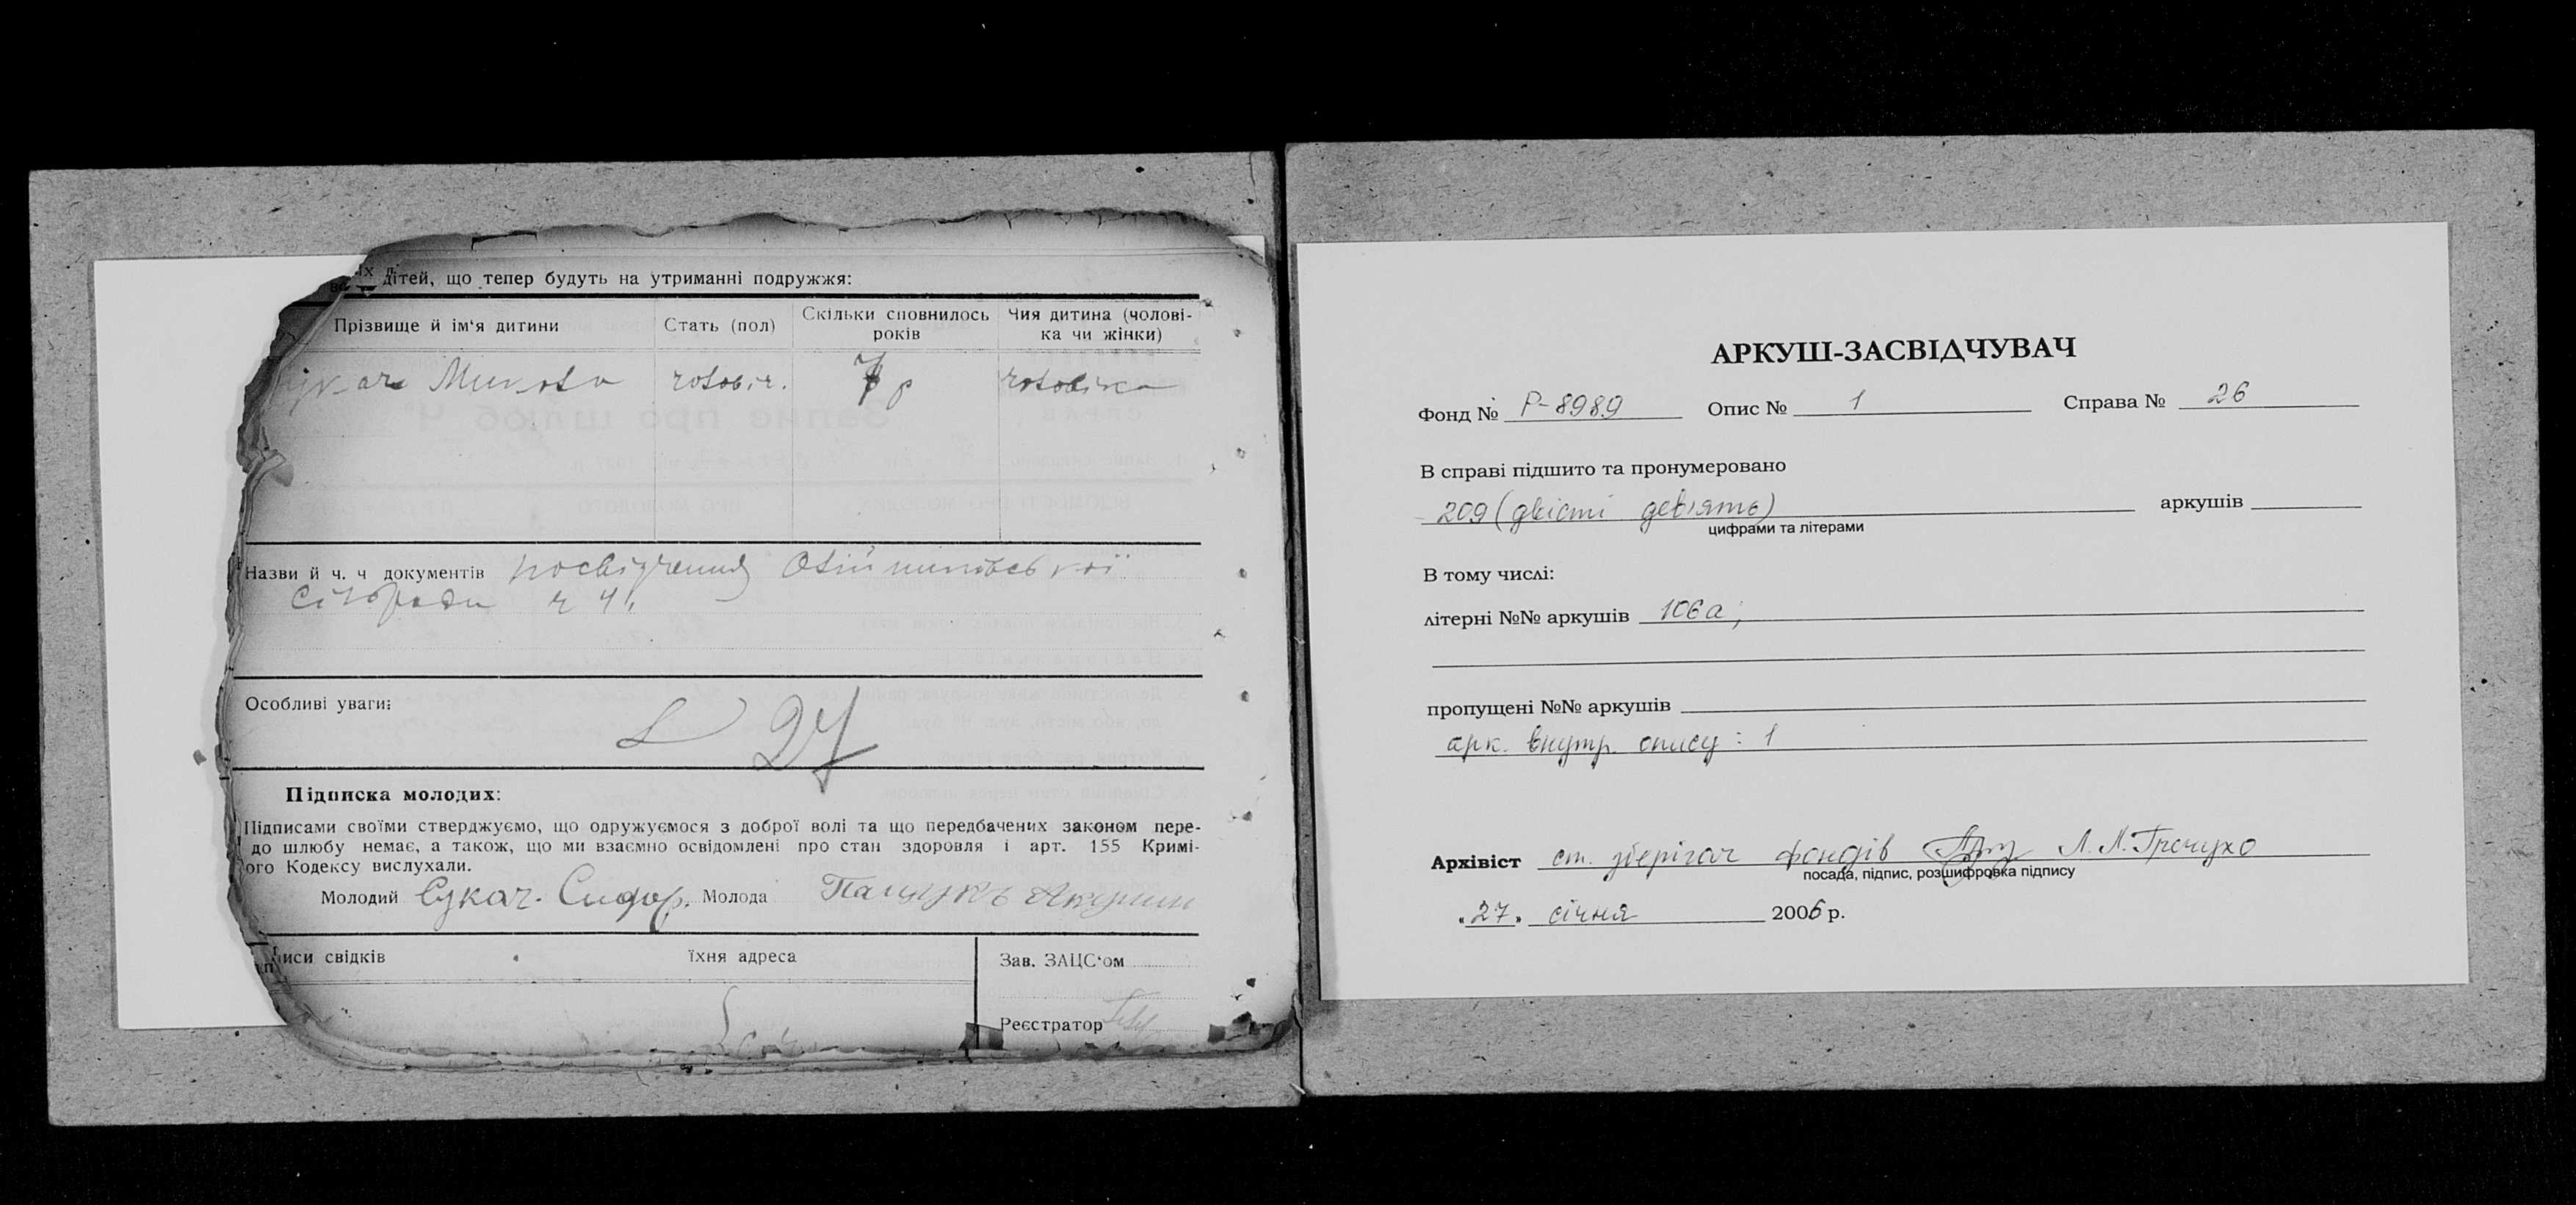 дітей, що тепер будуть на утриманні подружжя:
Прізвище й ім'я дитини
Стать (пол)
Скільки сповнилось років
Чия дитина (чолові-
ка чи жінки)
Микола чоловіч. 7 р чоловіка
Назви й ч. ч документів посвідчення
Сільради ч 41
Особливі уваги:
27
Підписка молодих:
Підписами своїми стверджуємо, що одружуємося з доброї волі та що передбачених законом пере-
до шлюбу немає, а також, що ми взаємно освідомлені про стан здоровля і арт. 155 Кримі-
ого Кодексу вислухали.
Молодий Сукач. Сидор. Молода Пащукъ
иси свідків
їхня адреса
Зав. ЗАЦС'ом
Реєстратор
АРКУШ-ЗАСВІДЧУВАЧ
Фонд № Р-8989 Опис № 1 Справа № 26
В справі підшито та пронумеровано
209 (двісті дев'ять) аркушів
цифрами та літерами
В тому числі:
літерні №№ аркушів 106а;
пропущені №№ аркушів
арк. внутр. опису: 1
Архівіст ст. зберігач фондів Л. М.
посада, підпис, розшифровка підпису
"27" січня 2006 р.